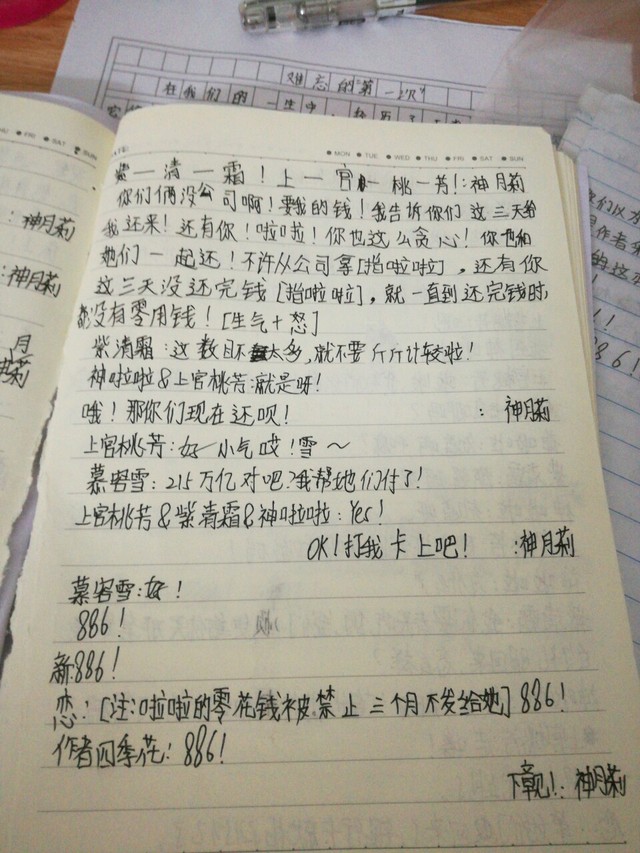 难忘的第一次
在我们的一生中,经历了
MON TUE WED THU FRI SAT SUN
FRI SAT SUN
紫一清一霜!上一官一桃一芳!:神月莉
你们俩没公司啊!要我的钱!我告诉你们这三天给
我还来!还有你!啦啦!你也这么贪心!你也和
她们一起还!不许从公司拿[指啦啦],还有你
这三天没还完钱[指啦啦],就一直到还完钱时,
都没有零用钱![生气+怒]
紫清霜:这数目不太多,就不要斤斤计较啦!
神啦啦&上官桃芳:就是呀!
哦!那你们现在还呗! :神月莉
上官桃芳:好小气哎!雪~
慕容雪:215万亿对吧?我帮她们付了!
上官桃芳&紫清霜&神啦啦:Yes!
OK!打我卡上吧! :神月莉
慕容雪:好!
886!
新:886!
恋:[注:啦啦的零花钱被禁止三个月不发给她]886!
作者四季花:886!
下章见!:神月莉
:神月莉
:神月莉
月莉